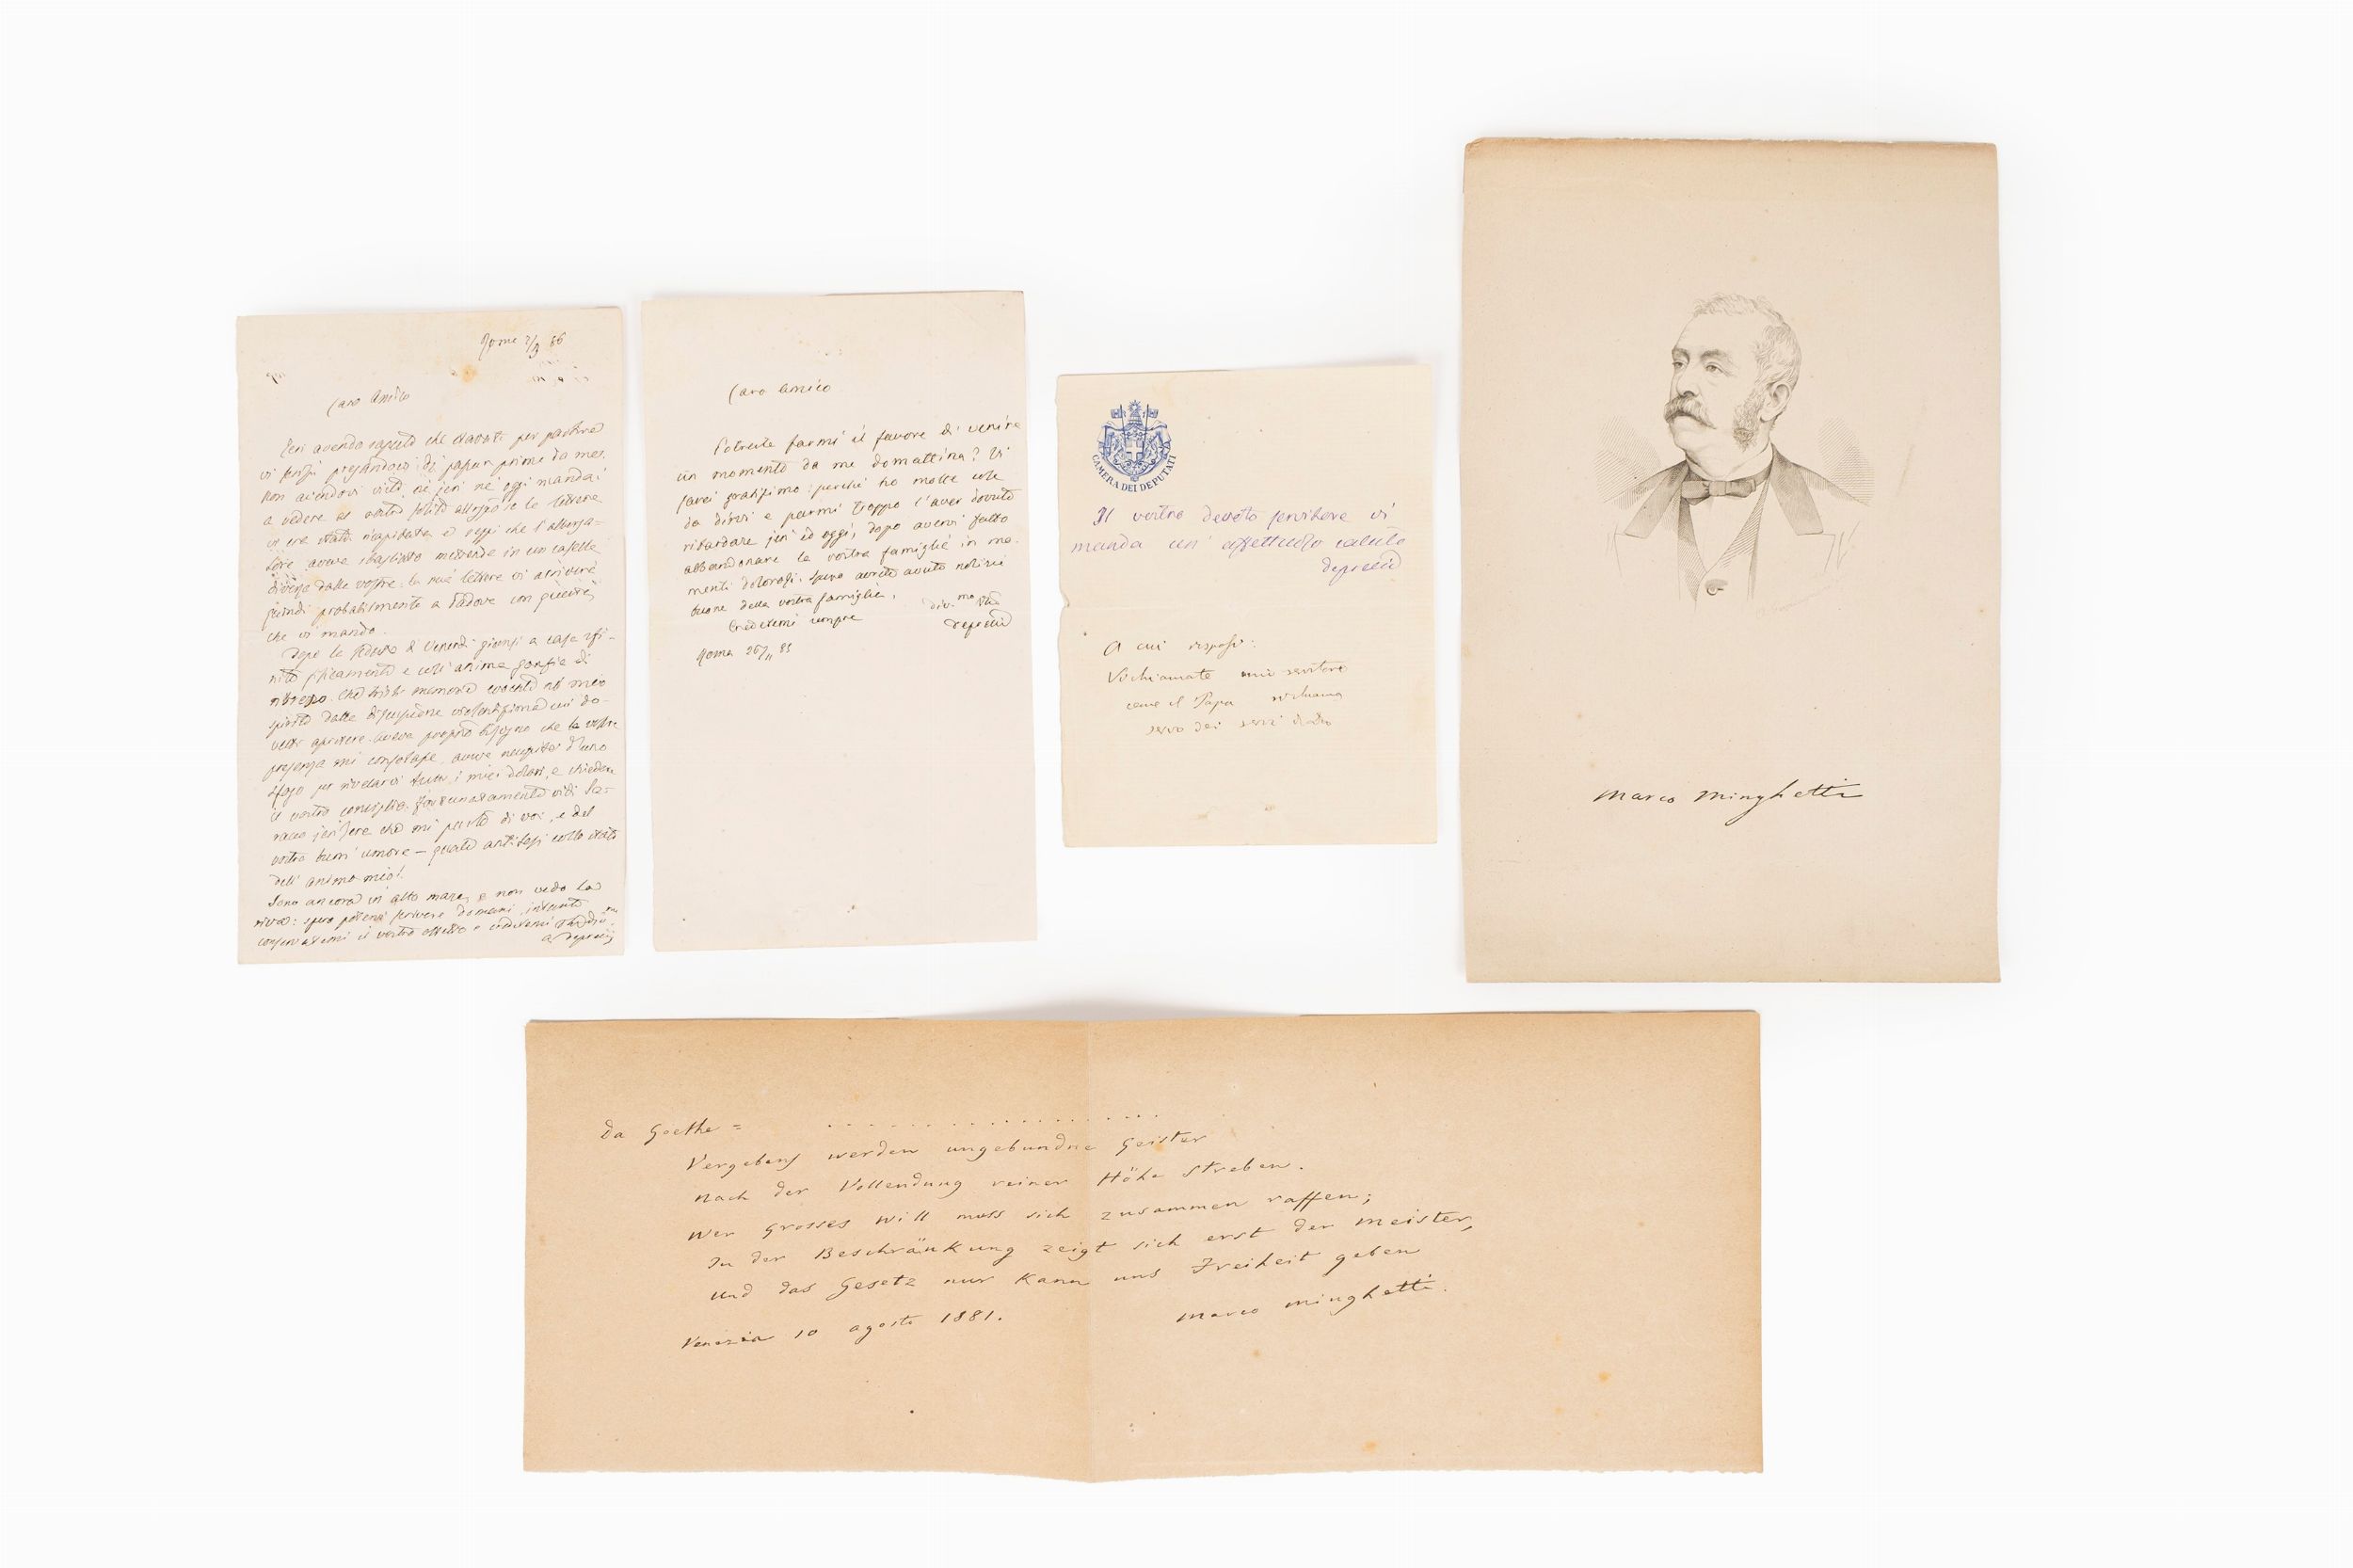 Roma 7/3 86
Caro Amico
Jeri avendo saputo che eravate per partire
vi scrissi pregandovi di passar prima da me.
Non avendovi visto nè jeri nè oggi mandai
a vedere al vostro solito albergo se la lettera
vi era stata ricapitata e oggi che l'alberga=
tore aveva sbagliato mettendo in un casella
diversa dalla vostra. la mia lettera vi arriverà
quindi probabilmente a Padova con questa
che vi mando.
Dopo la seduta di Venerdì giunsi a casa sfi-
nito fisicamente e coll'anima gonfia di
spirito dalla discussione violentissima cui do-
vetti assistere. Aveva proprio bisogno che la vostra
presenza mi consolasse, aveva necessità d'uno
sfogo per rivelarvi tutti i miei dolori, e chiedere
il vostro consiglio. Fortunatamente vidi La=
jersera che mi parlò di voi, e del
vostro buon umore — quale antitesi collo stato
dell'animo mio!
Sono ancora in alto mare, e non vedo la
riva: spero potervi scrivere domani, intanto
conservatemi il vostro affetto e credetemi
a Depretis
Caro Amico
Potreste farmi il favore di venire
un momento da me domattina? Vi
sarei gratissimo: perchè ho molte cose
da dirvi e parmi troppo l'aver dovuto
ritardare jeri ed oggi, dopo avervi fatto
abbandonare la vostra famiglia in mo-
menti dolorosi. Spero avrete avuto notizie
buone della vostra famiglia.
Credetemi sempre
Depretis
Roma 26/11 85
CAMERA DEI DEPUTATI
Il vostro devoto servitore vi
manda un affettuoso saluto
Depretis
A cui risposi:
Vi chiamate mio servitore
come il Papa si chiama
servo dei servi di Dio
Marco Minghetti
Da Goethe = . . . . . . . . . . . . . . . . . .
Vergebens werden ungebundne Geister
Nach der Vollendung reiner Höhe streben.
Wer Grosses will muss sich zusammen raffen;
In der Beschränkung zeigt sich erst der Meister,
Und das Gesetz nur kann uns Freiheit geben
Venezia 10 agosto 1881.
Marco Minghetti.